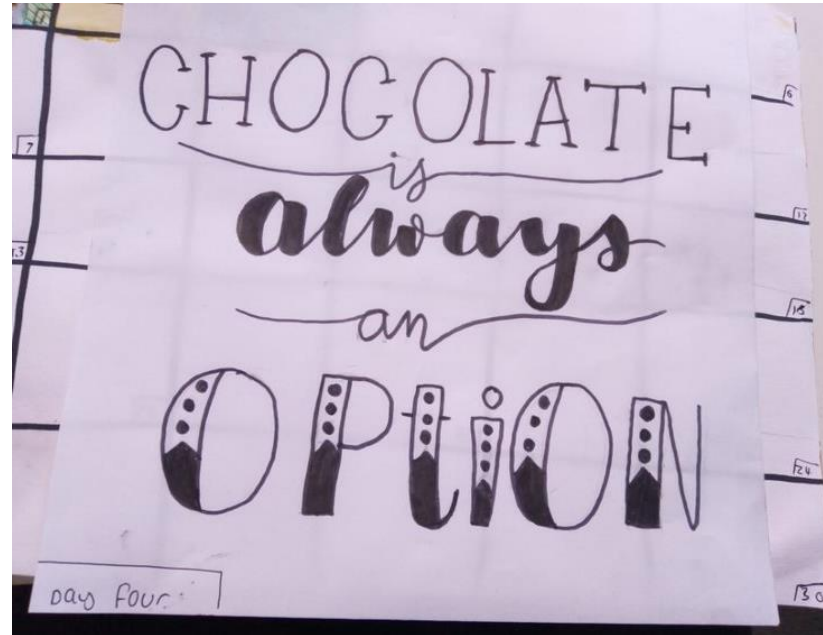 CHOCOLATE
is
always
an
OPtiON
Day four
7
13
6
12
18
24
30